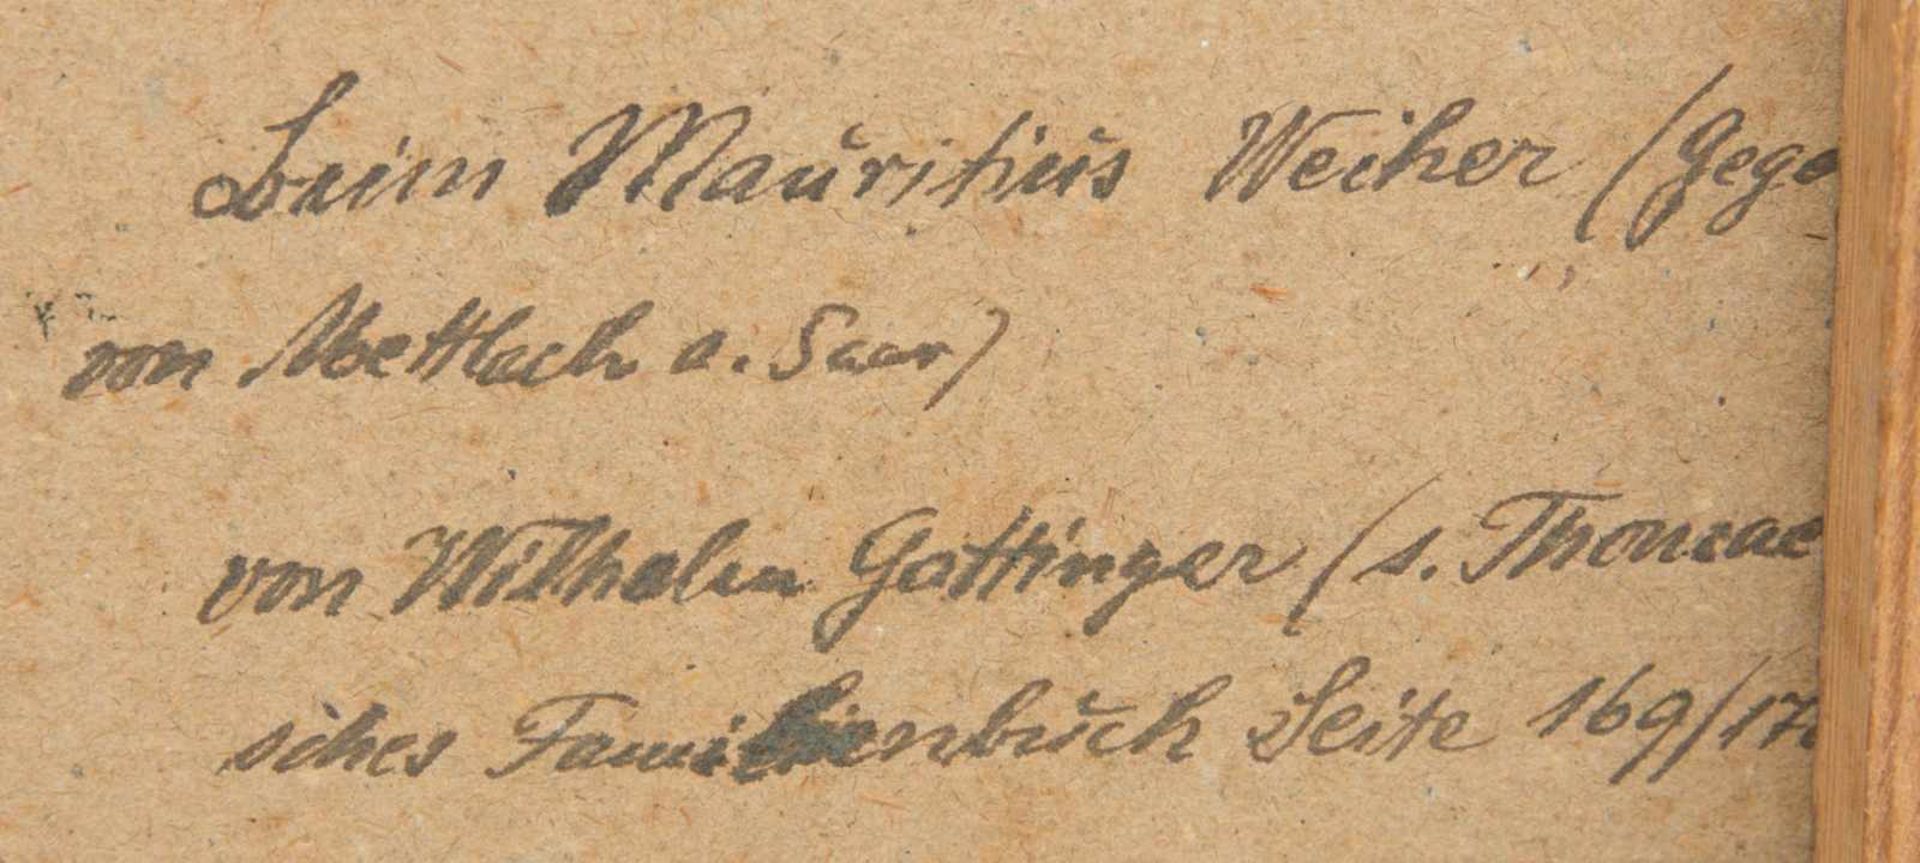 Beim Mauritius Weiher (Gege
von Mettlach a. Saar)
von Wilhelm Gattinger (s. Thomae
siches Familienbuch Seite 169/17